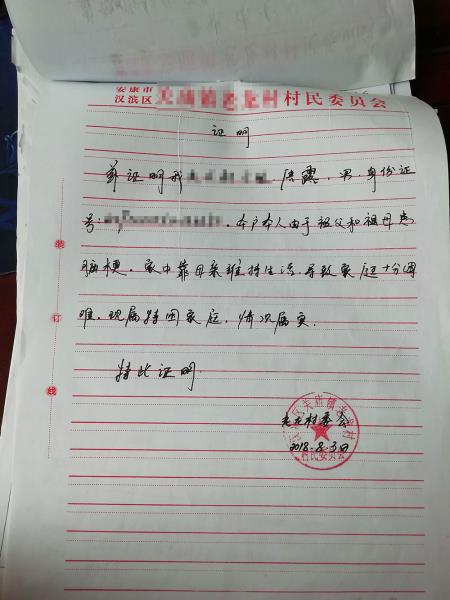 安康市
汉滨区 村民委员会
证明
兹证明我 男.身份证
号: .本户本人由于祖父和祖母患
脑梗.家中靠母亲维持生活.导致家庭十分困
难.现属特困家庭.情况属实.
特此证明.
村委会
2018.8.3日
村民委员会
装
订
线